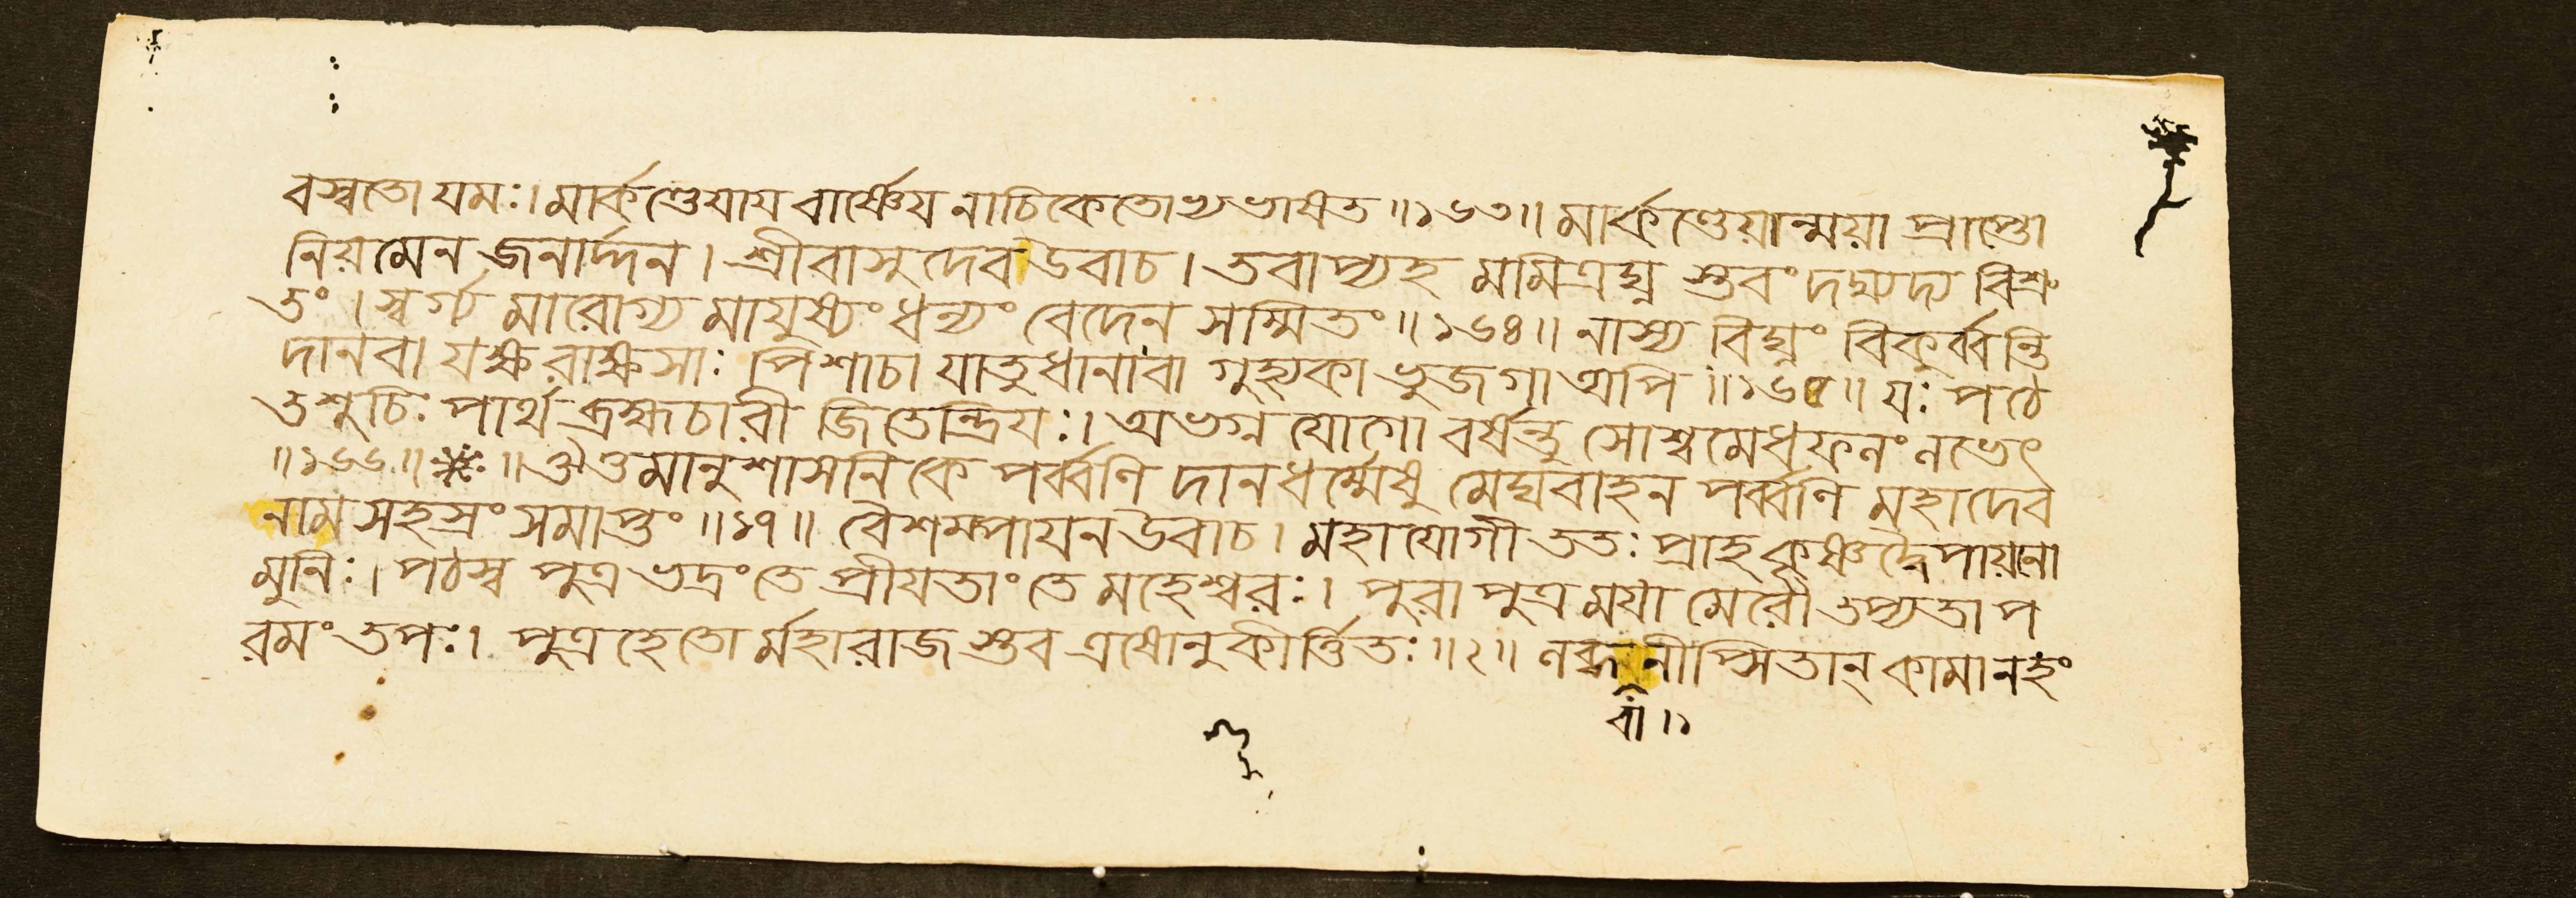 বস্বতো যমঃ। মার্কণ্ডেযায বার্ষ্ণেয নাচিকেতোভ্যভাষত॥১৬৩॥ মার্কণ্ডেয়ান্ময়া প্রাপ্তো
নিয়মেন জনার্দ্দন। শ্রীবাসুদেব উবাচ। তবাপ্যহ মমিত্রঘ্ন স্তবং দদ্মদ্য বিশ্রু
তং। স্বর্গ্য মারোগ্য মাযুষ্যং ধন্যং বেদেন সম্মিতং॥১৬৪॥ নাস্য বিঘ্নং বিকুর্ব্বন্তি
দানবা যক্ষ রাক্ষসাঃ পিশাচা যাতুধানাবা গুহ্যকা ভুজগা অপি॥১৬৫॥ যঃ পঠে
ত শুচিঃ পার্থ ব্রহ্মচারী জিতেন্দ্রিযঃ। অভগ্ন যোগো বর্ষন্তু সোশ্বমেধ ফলং লভেৎ
॥১৬৬॥ ॥ ঔঁ তমানুশাসনিকে পর্ব্বণি দানধর্ম্মেষু মেঘবাহন পর্ব্বণি মহাদেব
নাম সহস্রং সমাপ্তং॥১৭॥ বৈশম্পাযন উবাচ। মহাযোগী ততঃ প্রাহ কৃষ্ণদ্বৈপায়না
মুনিঃ। পঠস্ব পুত্র ভদ্রং তে প্রীযতাং তে মহেশ্বরঃ। পুরা পুত্র মযা মেরৌ তপ্যতা প
রমং তপঃ। পুত্র হেতো র্মহারাজ স্তব এষোনুকীর্ত্তিতঃ॥২॥ লব্ধ নীপ্সিতান্ কামানহং
বা॥১